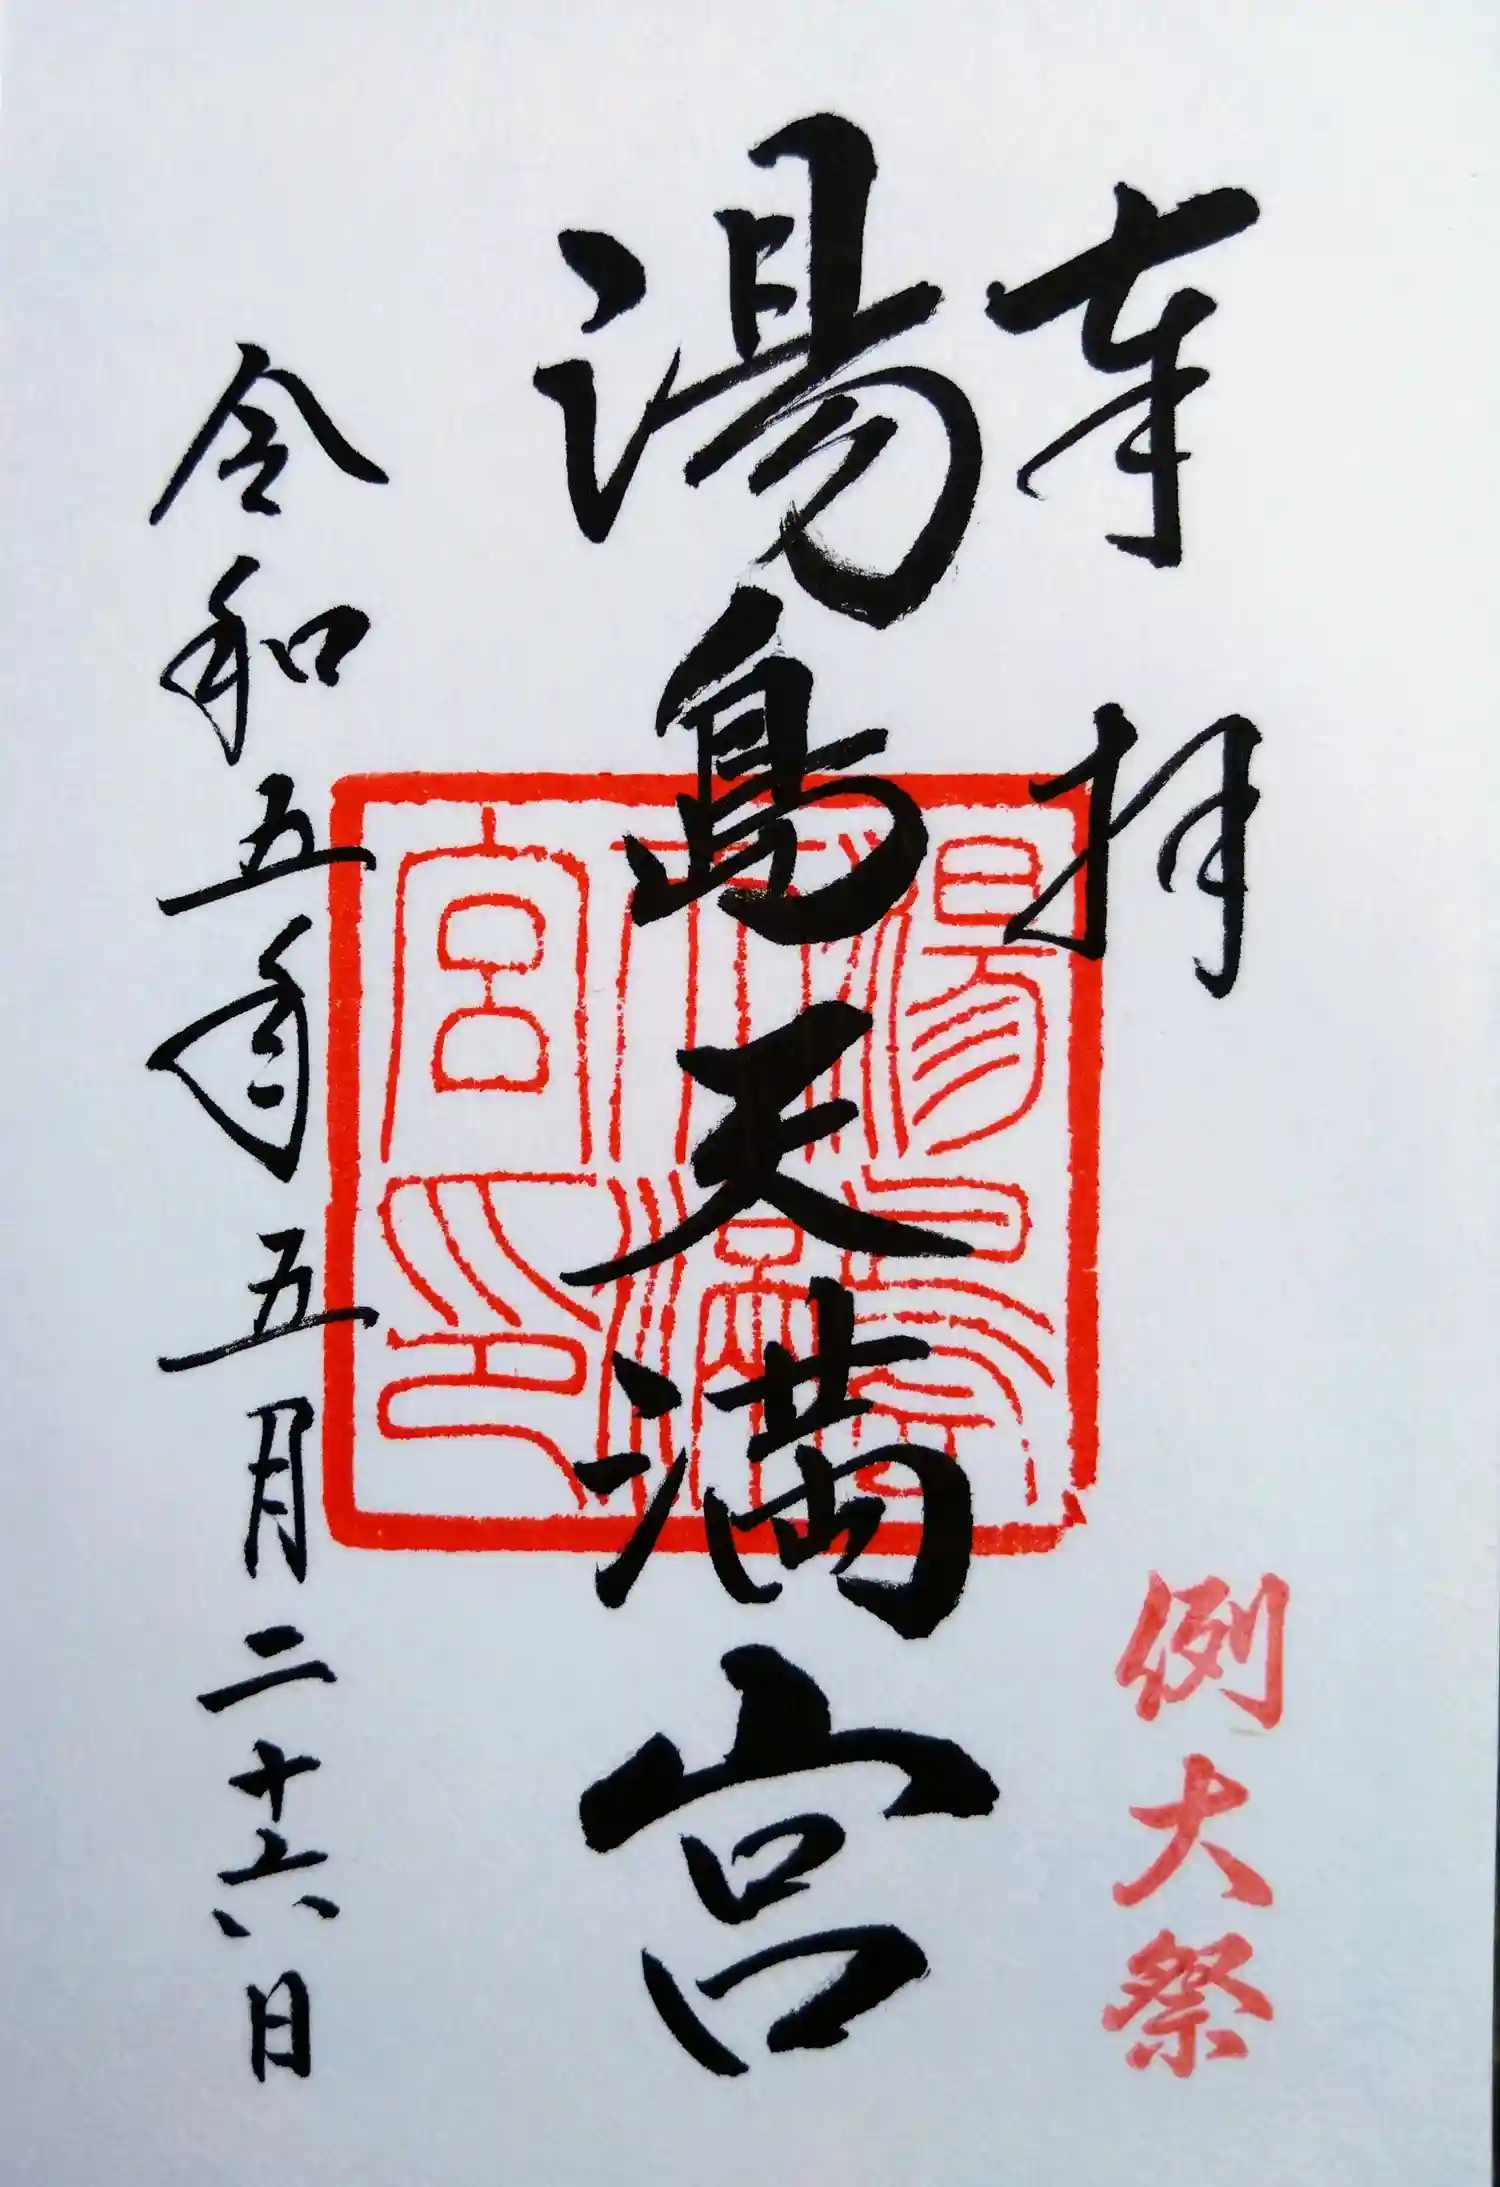 奉拝
例大祭
湯島天満宮
湯島天満宮印
令和五年五月二十六日